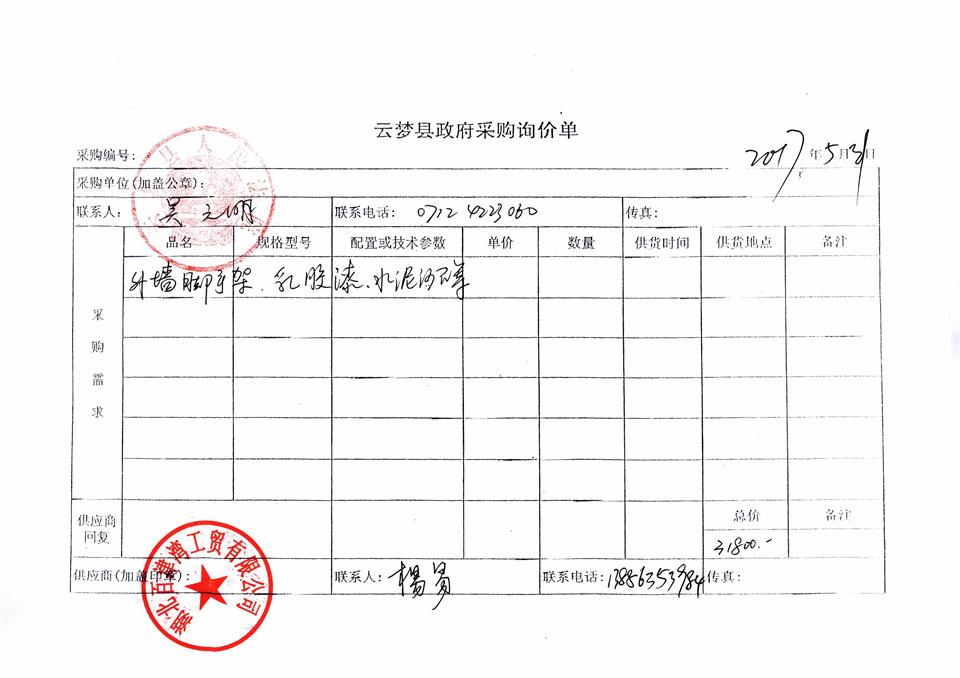 云梦县政府采购询价单
采购编号: 2017年5月31日
采购单位(加盖公章):
联系人: 吴元明 联系电话: 0712 4223060 传真:
采购需求 品名 规格型号 配置或技术参数 单价 数量 供货时间 供货地点 备注
外墙脚手架、乳胶漆、水泥沙石等
供应商回复 总价 备注
31800.-
供应商(加盖印章): 联系人: 杨易 联系电话: 13886353984 传真:
湖北百津湾工贸有限公司